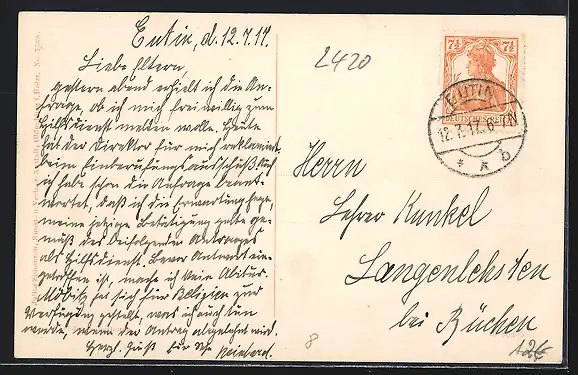 Eutin, d. 12.7.17.
Liebe Eltern,
gestern abend erhielt ich die An-
frage, ob ich mich freiwillig zum
Hilfsdienst melden wolle. Heute
hat der Direktor für mich reklamiert
beim Einberufungsausschuß. Auch
ich habe schon die Anfrage beant-
wortet, daß ich die Erwartung hege,
meine jetzige Betätigung gelte ge-
mäß des beifolgenden Antrages
als Hilfsdienst. Bevor Antwort ein-
getroffen ist, mache ich kein Abitur.
hat sich für Religion zur
Verfügung gestellt, was ich auch tun
werde, wenn der Antrag abgelehnt wird.
Herzl. Gruß Euer
2420
7½ 7½
DEUTSCHES REICH
EUTIN
12.7.17. 6
Herrn
Lehrer Kunkel
Langenlehsten
bei Büchen
8
12€